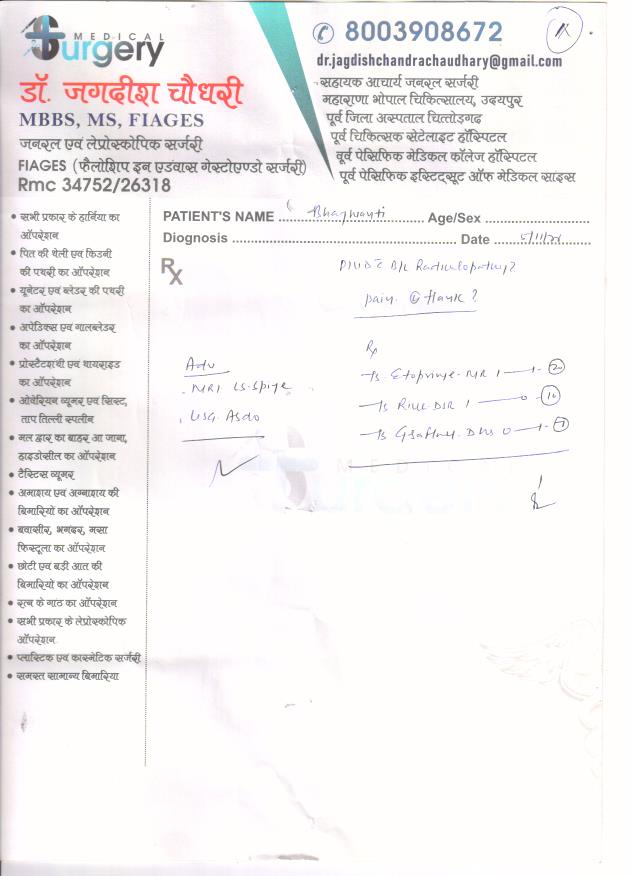 MEDICAL
Surgery
डॉ. जगदीश चौधरी
MBBS, MS, FIAGES
जनरल एवं लेप्रोस्कोपिक सर्जरी
FIAGES (फैलोशिप इन एडवास गेस्टोएण्डो सर्जरी)
Rmc 34752/26318
8003908672
dr.jagdishchandrachaudhary@gmail.com
सहायक आचार्य जनरल सर्जरी
महाराणा भोपाल चिकित्सालय, उदयपुर
पूर्व जिला अस्पताल चित्तोड़गढ
पूर्व चिकित्सक सेटेलाइट हॉस्पिटल
पूर्व पेसिफिक मेडिकल कॉलेज हॉस्पिटल
पूर्व पेसिफिक इस्टिट्सूट ऑफ मेडिकल साइस
PATIENT'S NAME Bhagwanti Age/Sex
Diognosis Date
Rx
Radiculopathy?
pain flank?
Adv
MRI LS-Spine
USG
Rx
• सभी प्रकार के हार्निया का
ऑपरेशन
• पित की थेली एवं किडनी
की पथरी का ऑपरेशन
• यूनेटर एवं ब्लेडर की पथरी
का ऑपरेशन
• अपेडिक्स एवं गालब्लेडर
का ऑपरेशन
• प्रोस्टेटग्रंथी एवं थायराइड
का ऑपरेशन
• ओवेरियन व्यूमर एवं सिस्ट,
ताप तिल्ली स्पलीन
• मल द्वार का बाहर आ जाना,
हाइडोसील का ऑपरेशन
• टैस्टिस व्यूमर
• अमाशय एवं अग्नाशय की
बिमारियों का ऑपरेशन
• बवासीर, भगंदर, मसा
फिस्टूला का ऑपरेशन
• छोटी एवं बड़ी आत की
बिमारियों का ऑपरेशन
• स्तन के गाठ का ऑपरेशन
• सभी प्रकार के लेप्रोस्कोपिक
ऑपरेशन
• प्लास्टिक एवं कास्मेटिक सर्जरी
• समस्त सामान्य बिमारिया